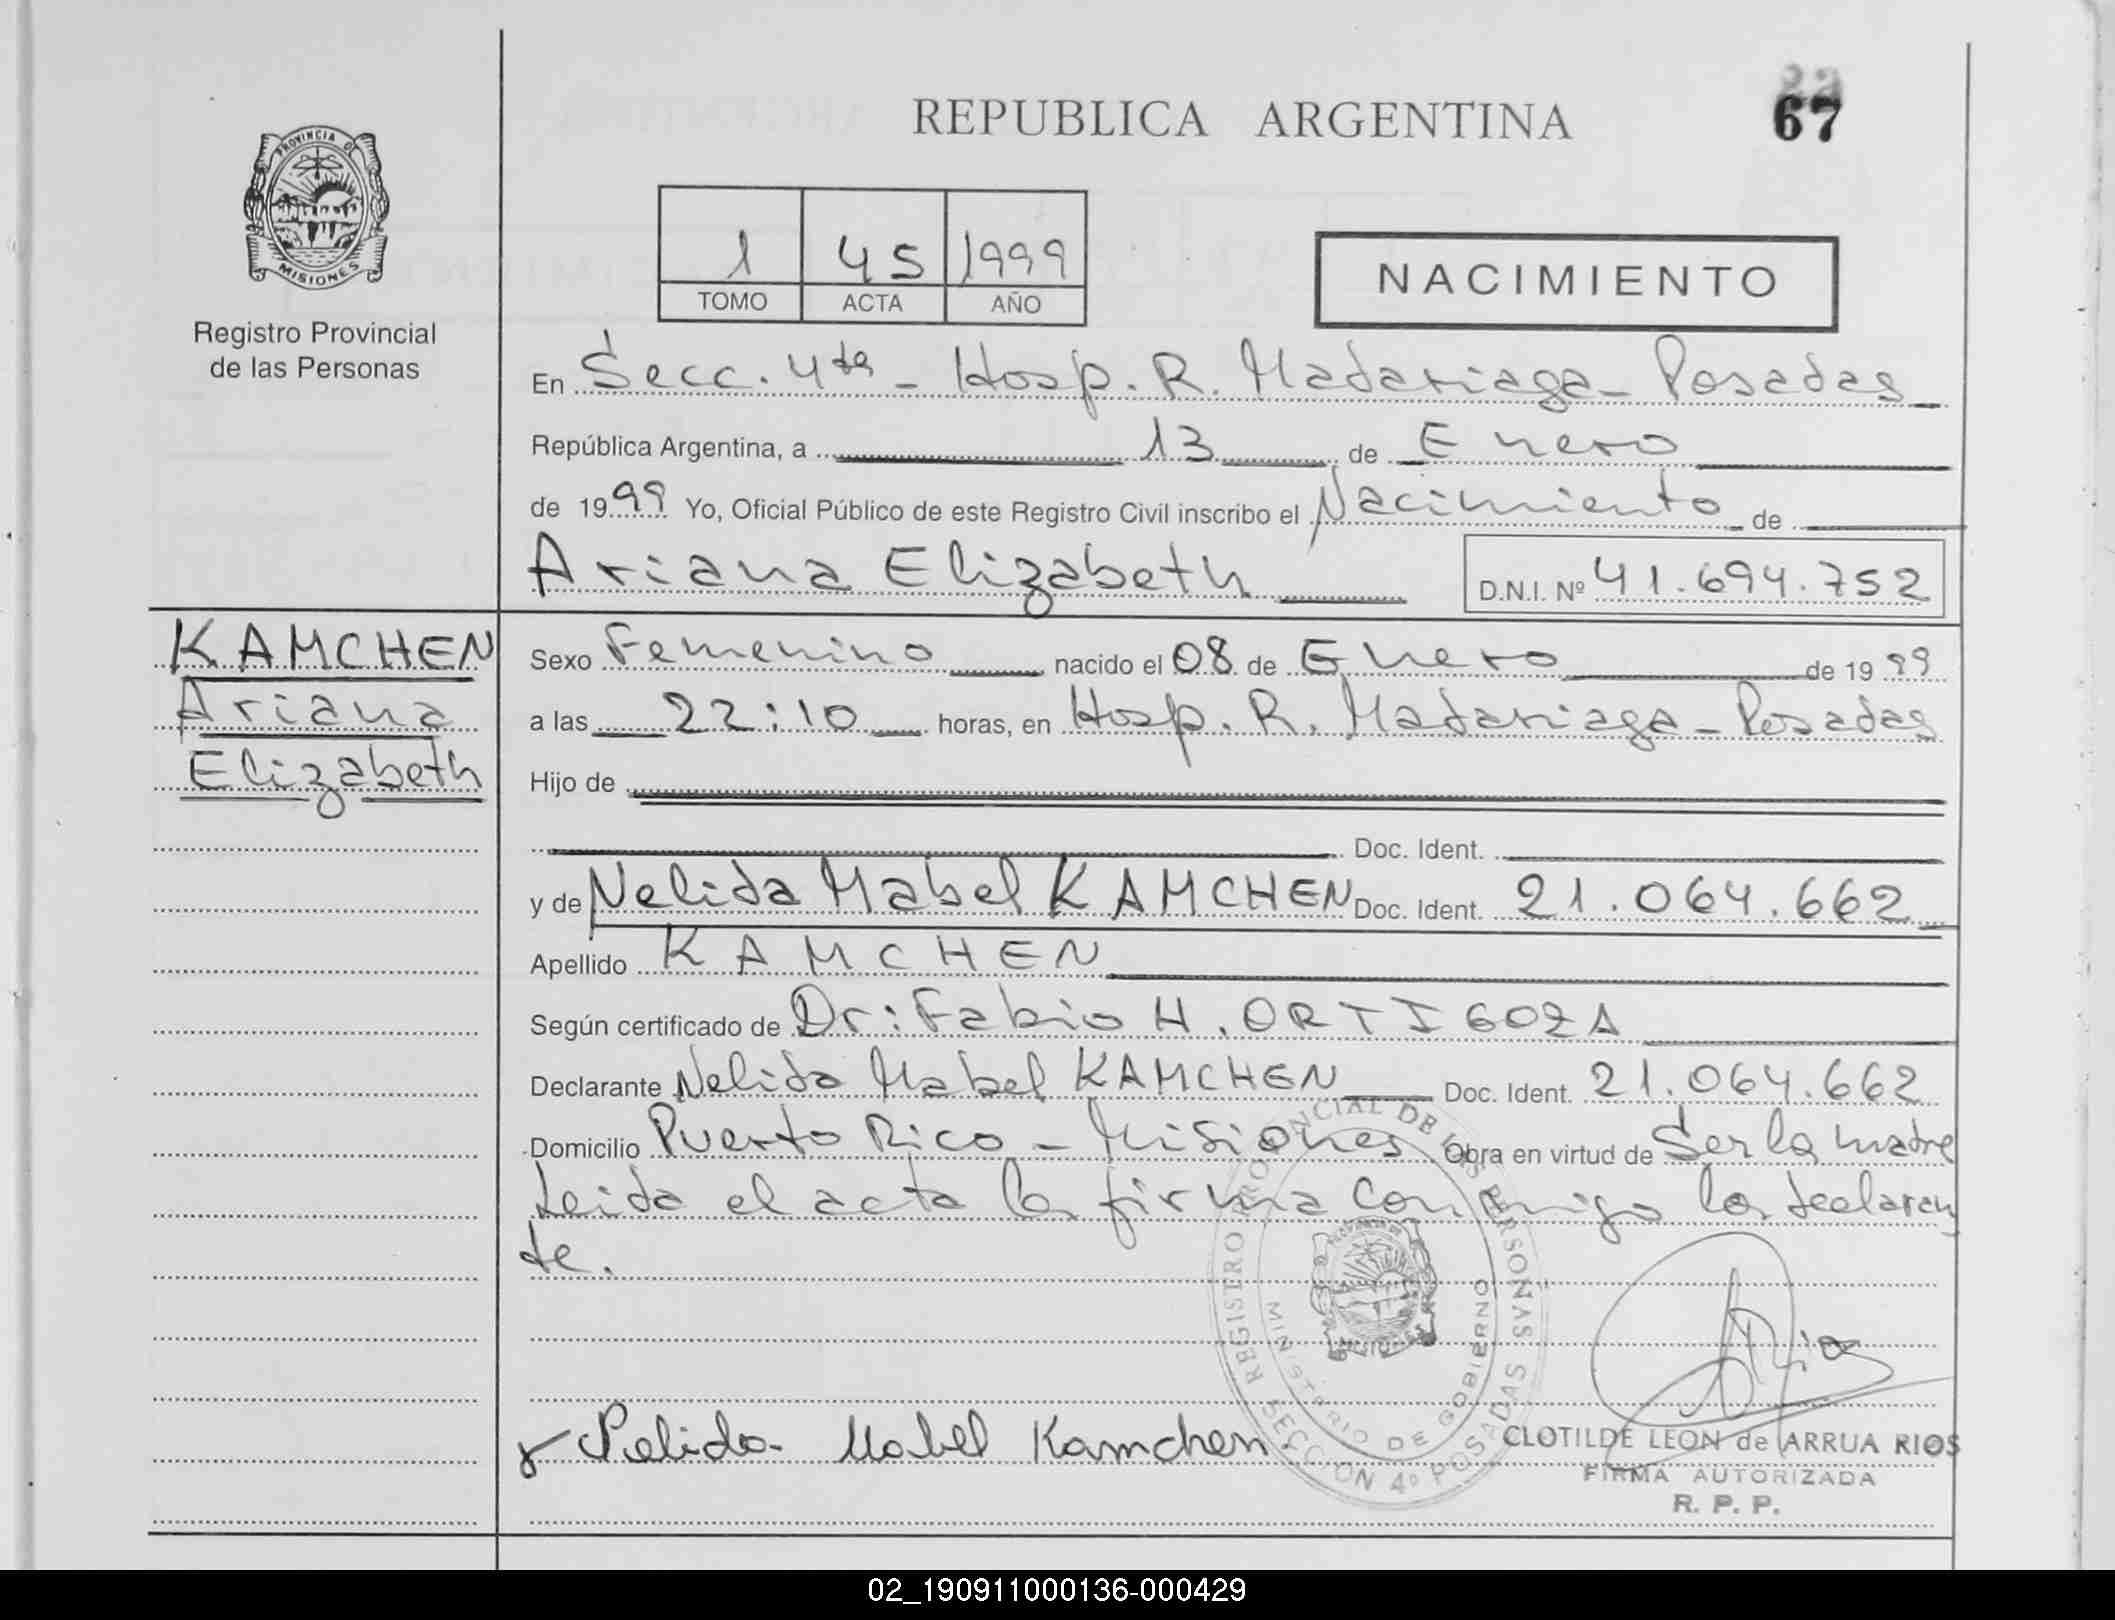 PROVINCIA DE
MISIONES
Registro Provincial
de las Personas
REPUBLICA ARGENTINA
67
1 45 1999
TOMO ACTA AÑO
NACIMIENTO
En Secc. 4ta - Hosp. R. Madariaga - Posadas
República Argentina, a 13 de Enero
de 1999 Yo, Oficial Público de este Registro Civil inscribo el Nacimiento de
Ariana Elizabeth D.N.I. Nº 41.694.752
KAMCHEN
Ariana
Elizabeth
Sexo Femenino nacido el 08 de Enero de 1999
a las 22:10 horas, en Hosp. R. Madariaga - Posadas
Hijo de
Doc. Ident.
y de Nelida Mabel KAMCHEN Doc. Ident. 21.064.662
Apellido KAMCHEN
Según certificado de Dr: Fabio H. ORTIGOZA
Declarante Nelida Mabel KAMCHEN Doc. Ident. 21.064.662
Domicilio Puerto Rico - Misiones Obra en virtud de Ser la madre
Leida el acta la firma conmigo la declaran
te.
REGISTRO PROVINCIAL DE LAS PERSONAS
MINISTERIO DE GOBIERNO
SECCION 4º POSADAS
Nelida Mabel Kamchen
CLOTILDE LEON de ARRUA RIOS
FIRMA AUTORIZADA
R. P. P.
02_190911000136-000429